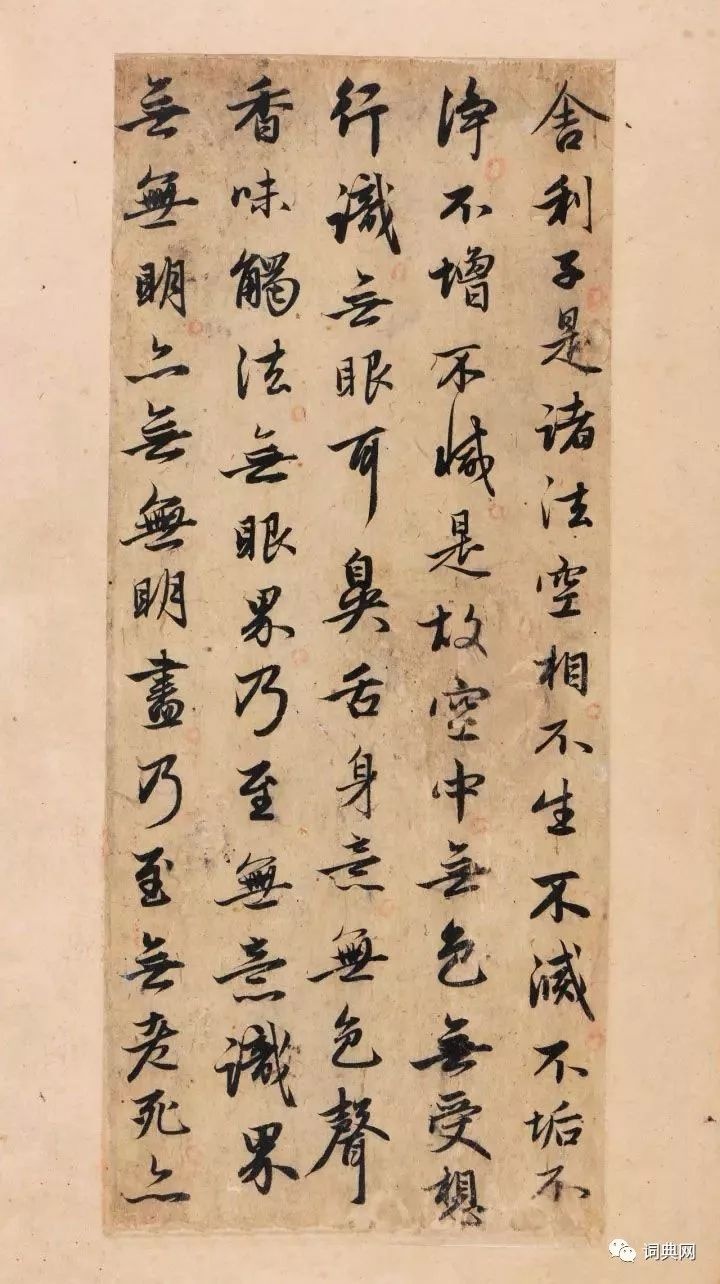 舍利子是諸法空相不生不滅不垢不
淨不增不減是故空中無色無受想
行識無眼耳鼻舌身意無色聲
香味觸法無眼界乃至無意識界
無無明亦無無明盡乃至無老死亦
词典网